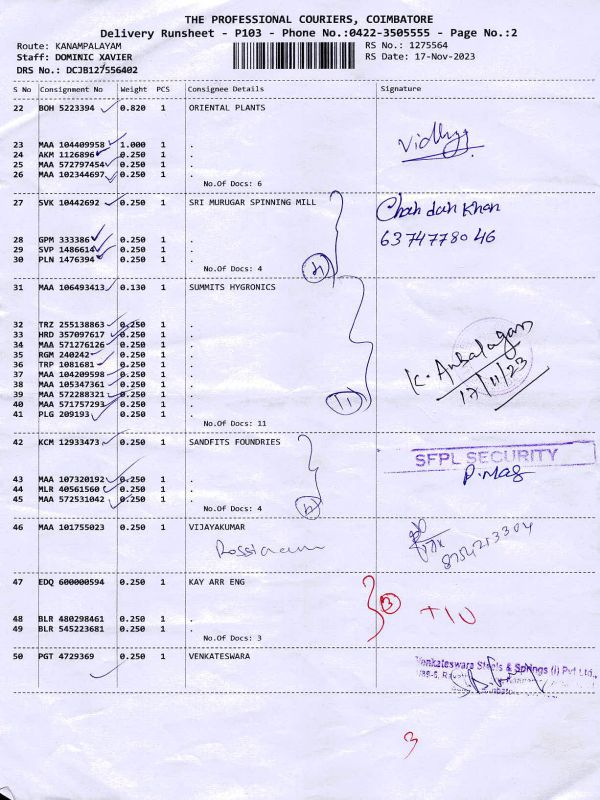 THE PROFESSIONAL COURIERS, COIMBATORE
Delivery Runsheet - P103 - Phone No.:0422-3505555 - Page No.:2
Route: KANAMPALAYAM RS No.: 1275564
Staff: DOMINIC XAVIER RS Date: 17-Nov-2023
DRS No.: DCJB127556402
S No Consignment No Weight PCS Consignee Details Signature
22 BOH 5223394 0.820 1 ORIENTAL PLANTS
Vidhya
23 MAA 104409958 1.000 1 .
24 AKM 1126896 0.250 1 .
25 MAA 572797454 0.250 1 .
26 MAA 102344697 0.250 1 .
No.Of Docs: 6
27 SVK 10442692 0.250 1 SRI MURUGAR SPINNING MILL
Chandan Khan
6374778046
28 GPM 333386 0.250 1 .
29 SVP 1486614 0.250 1 .
30 PLN 1476394 0.250 1 .
No.Of Docs: 4
4
31 MAA 106493413 0.130 1 SUMMITS HYGRONICS
32 TRZ 255138863 0.250 1 .
33 HRD 357097617 0.250 1 .
34 MAA 571276126 0.250 1 .
35 RGM 240242 0.250 1 .
36 TRP 1081681 0.250 1 .
37 MAA 104209598 0.250 1 .
38 MAA 105347361 0.250 1 .
39 MAA 572288321 0.250 1 .
40 MAA 571757293 0.250 1 .
41 PLG 209193 0.250 1 .
No.Of Docs: 11
11
K. Anbalagan
17/11/23
42 KCM 12933473 0.250 1 SANDFITS FOUNDRIES
SFPL SECURITY
43 MAA 107320192 0.250 1 .
44 MLR 40561560 0.250 1 .
45 MAA 572531042 0.250 1 .
No.Of Docs: 4
46 MAA 101755023 0.250 1 VIJAYAKUMAR
8754253304
47 EDQ 600000594 0.250 1 KAY ARR ENG
3
48 BLR 480298461 0.250 1 .
49 BLR 545223681 0.250 1 .
No.Of Docs: 3
50 PGT 4729369 0.250 1 VENKATESWARA
Venkateswara Steels & Springs (I) Pvt Ltd.,
3